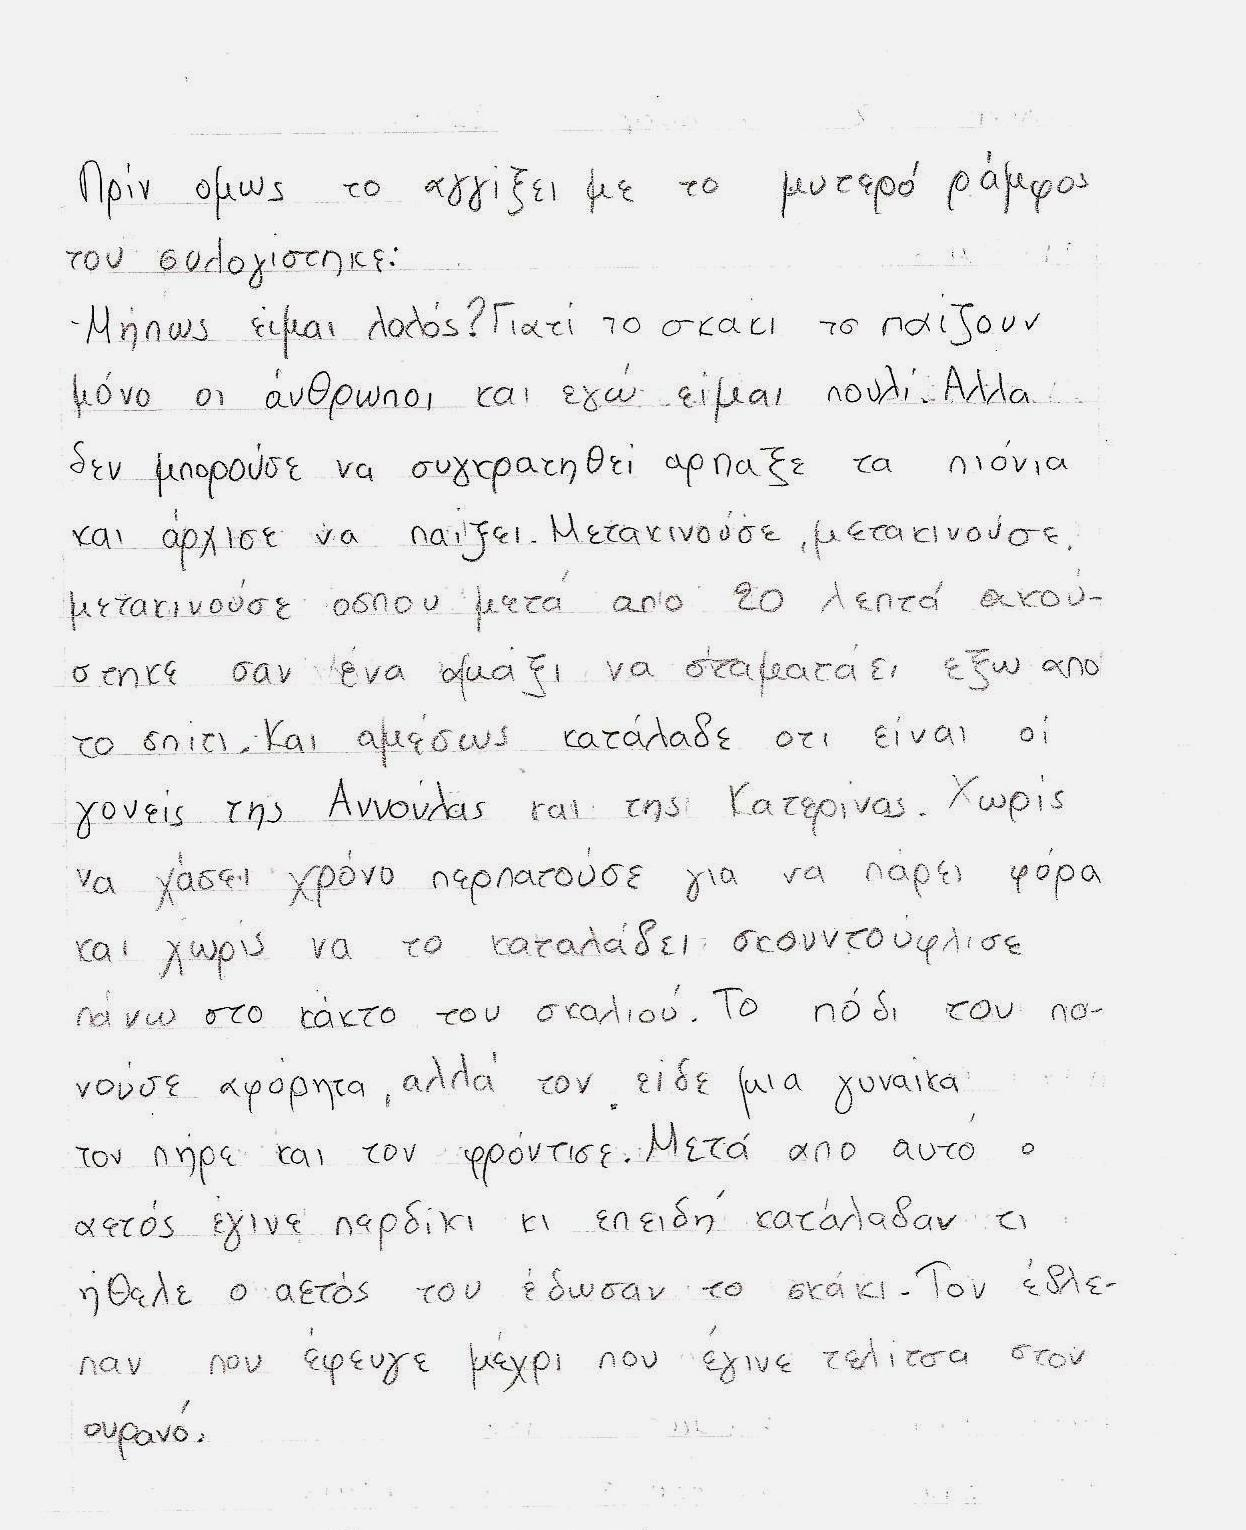 Πρίν ομως το αγγίξει με το μυτερό ράμφος
του συλογιστηκε:
-Μήπως είμαι λολός? Γιατί το σκακι το παίζουν
μόνο οι άνθρωποι και εγώ είμαι πουλί. Αλλα
δεν μπορούσε να συγκρατηθεί αρπαξε τα πιόνια
και άρχισε να παίζει. Μετακινούσε, μετακινούσε,
μετακινούσε οσπου μετά απο 20 λεπτά ακού-
στηκε σαν ένα αμάξι να σταματάει εξω απο
το σπιτι. Και αμέσως κατάλαβε οτι είναι οί
γονείς της Αννούλας και της Κατερίνας. Χωρίς
να χάσει χρόνο περπατούσε για να πάρει φόρα
και χωρίς να το καταλάβει σκουντούφλισε
πάνω στο κάκτο του σκαλιού. Το πόδι του πο-
νούσε αφόρητα, αλλά τον είδε μια γυναίκα
τον πήρε και τον φρόντισε. Μετά απο αυτό ο
αετός έγινε περδίκι κι επειδή κατάλαβαν τι
ήθελε ο αετός του έδωσαν το σκάκι. Τον έβλε-
παν που έφευγε μέχρι που έγινε τελίτσα στον
ουρανό.